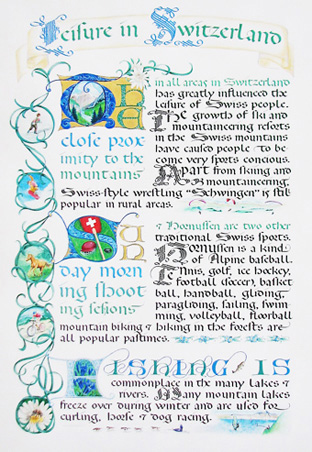 Leisure in Switzerland
The close prox
imity to the
mountains
in all areas in Switzerland
has greatly influenced the
leisure of Swiss people.
The growth of ski and
mountaineering resorts
in the Swiss mountains
have caused people to be
come very sports concious.
Apart from skiing and
mountaineering,
Swiss-style wrestling "Schwingen" is still
popular in rural areas.
Sun
day morn
ing shoot
ing sessions
& Hornussen are two other
traditional Swiss sports.
Hornussen is a kind
of Alpine baseball.
Tennis, golf, ice hockey,
football (soccer), basket
ball, handball, gliding,
paragliding, sailing, swim
ming, volleyball, floorball
mountain biking & hiking in the forests are
all popular pastimes.
Fishing is
commonplace in the many lakes &
rivers. Many mountain lakes
freeze over during winter and are used for
curling, horse & dog racing.